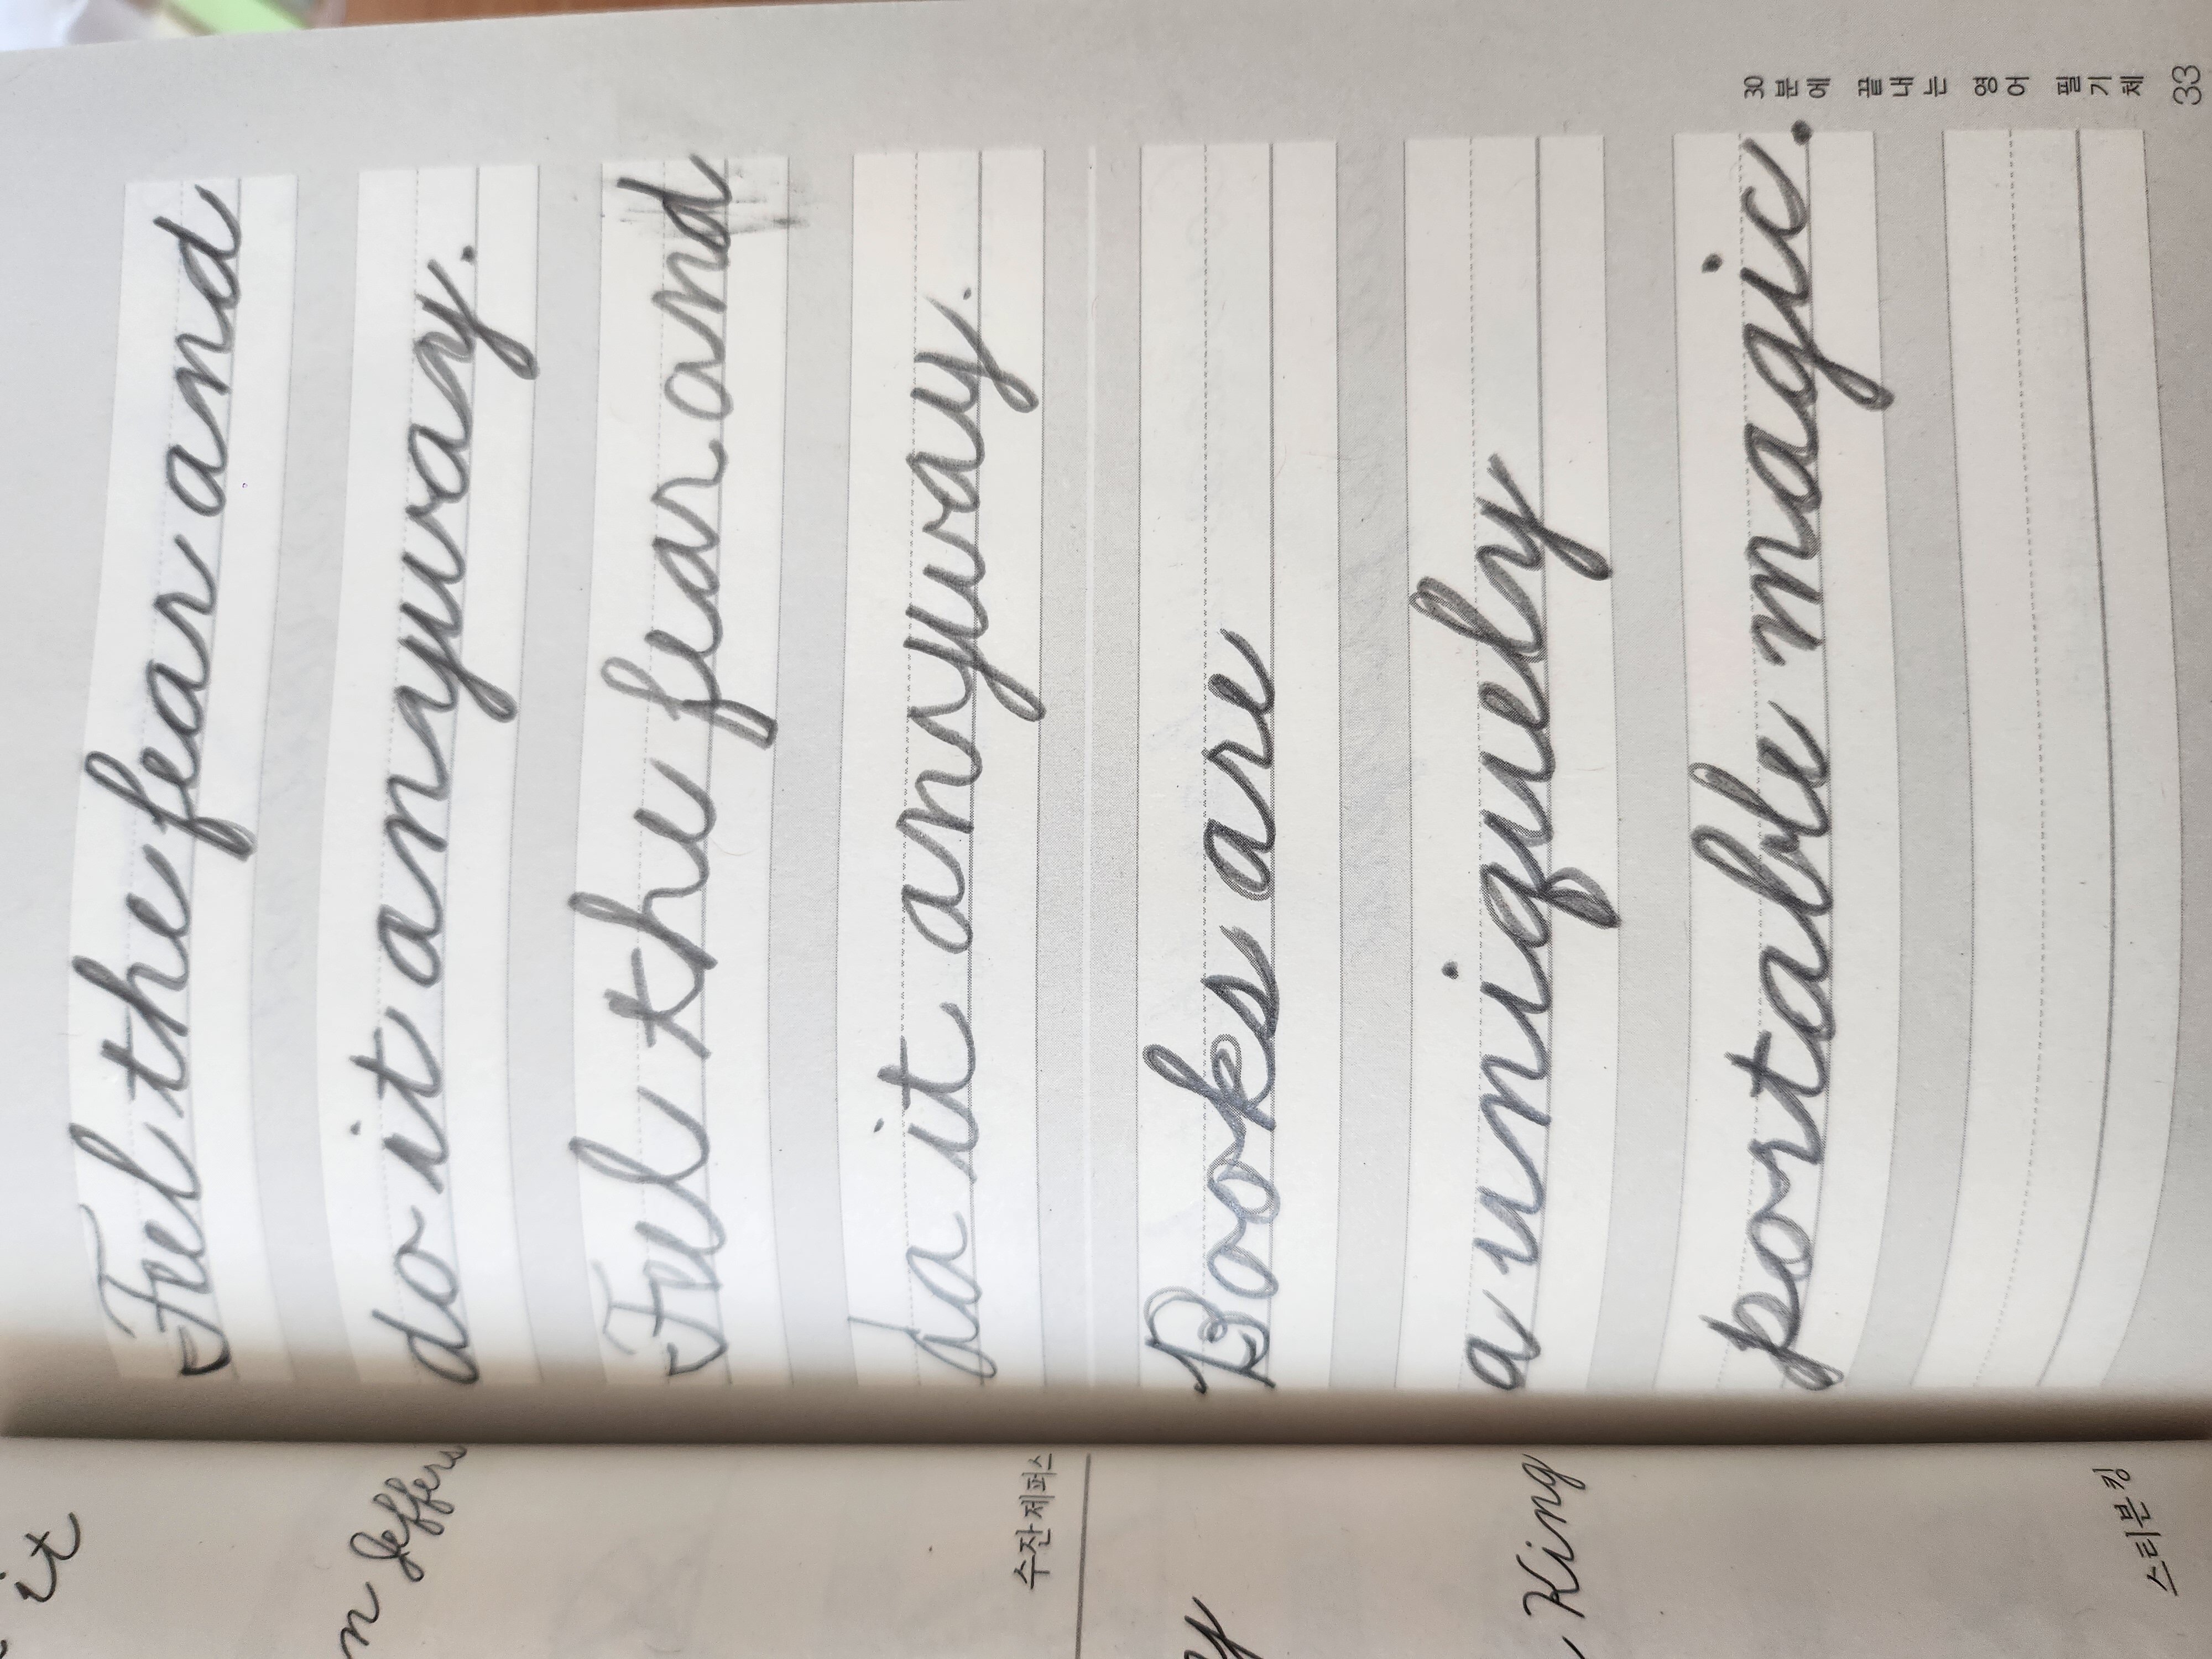 it
n Jeffers
수잔 제퍼스
y
King
스티븐 킹
Feel the fear and
do it anyway.
Feel the fear and
da it anyway.
Books are
a uniquely
portable magic.
30분에 끝내는 영어 필기체 33